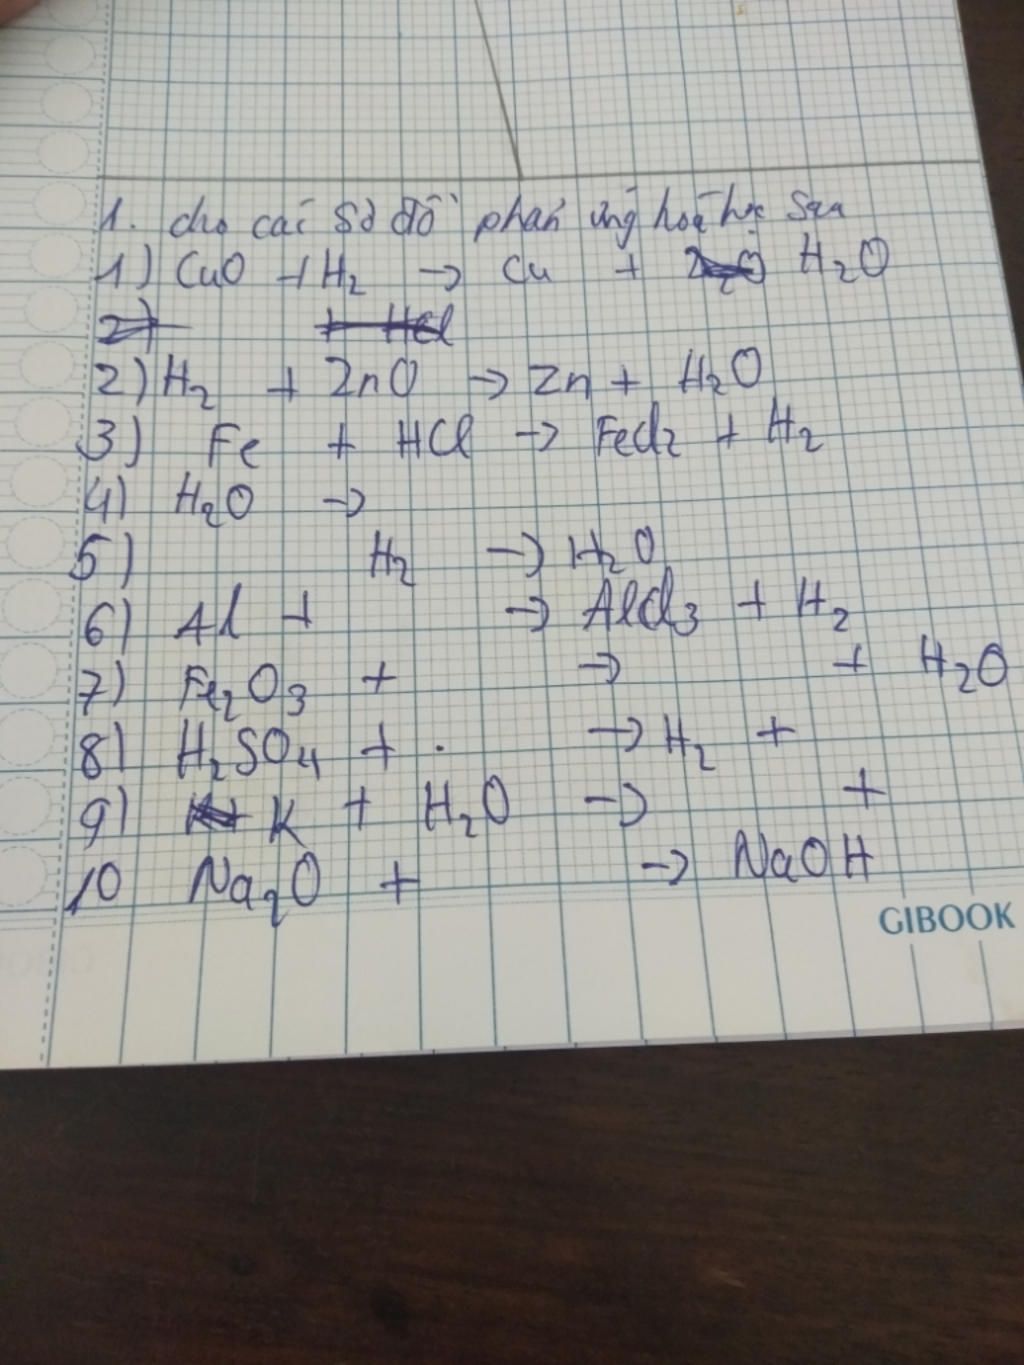 1. cho các sơ đồ phản ứng hoá học sau
1) CuO + H2 → Cu + H2O
2) + HCl
2) H2 + ZnO → Zn + H2O
3) Fe + HCl → FeCl2 + H2
4) H2O →
5) H2 → H2O
6) Al + → AlCl3 + H2
7) Fe2O3 + → + H2O
8) H2SO4 + . → H2 +
9) K + H2O → +
10 Na2O + → NaOH
GIBOOK